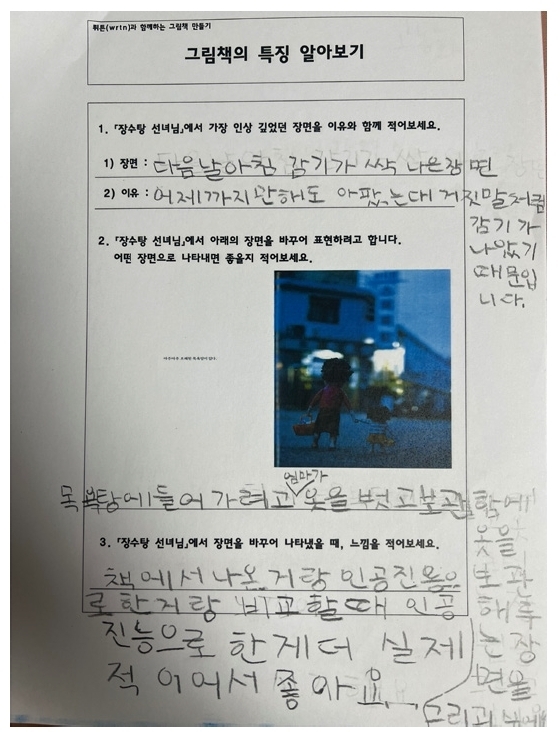 뤼튼(wrtn)과 함께하는 그림책 만들기
그림책의 특징 알아보기
1. 「장수탕 선녀님」에서 가장 인상 깊었던 장면을 이유와 함께 적어보세요.
1) 장면 : 다음날아침 감기가 싹 나은장면
2) 이유 : 어제까지만해도 아팠는데 거짓말처럼
감기가
나았기
때문입
니다.
2. 「장수탕 선녀님」에서 아래의 장면을 바꾸어 표현하려고 합니다.
어떤 장면으로 나타내면 좋을지 적어보세요.
엄마가
목욕탕에들어가려고 옷을 벗고보관함에
옷을
보관
해두
는장
면을
3. 「장수탕 선녀님」에서 장면을 바꾸어 나타냈을 때, 느낌을 적어보세요.
책에서나온거랑 인공진능으
로한거랑 비교할때 인공
진능으로 한게더 실제
적이어서좋아요